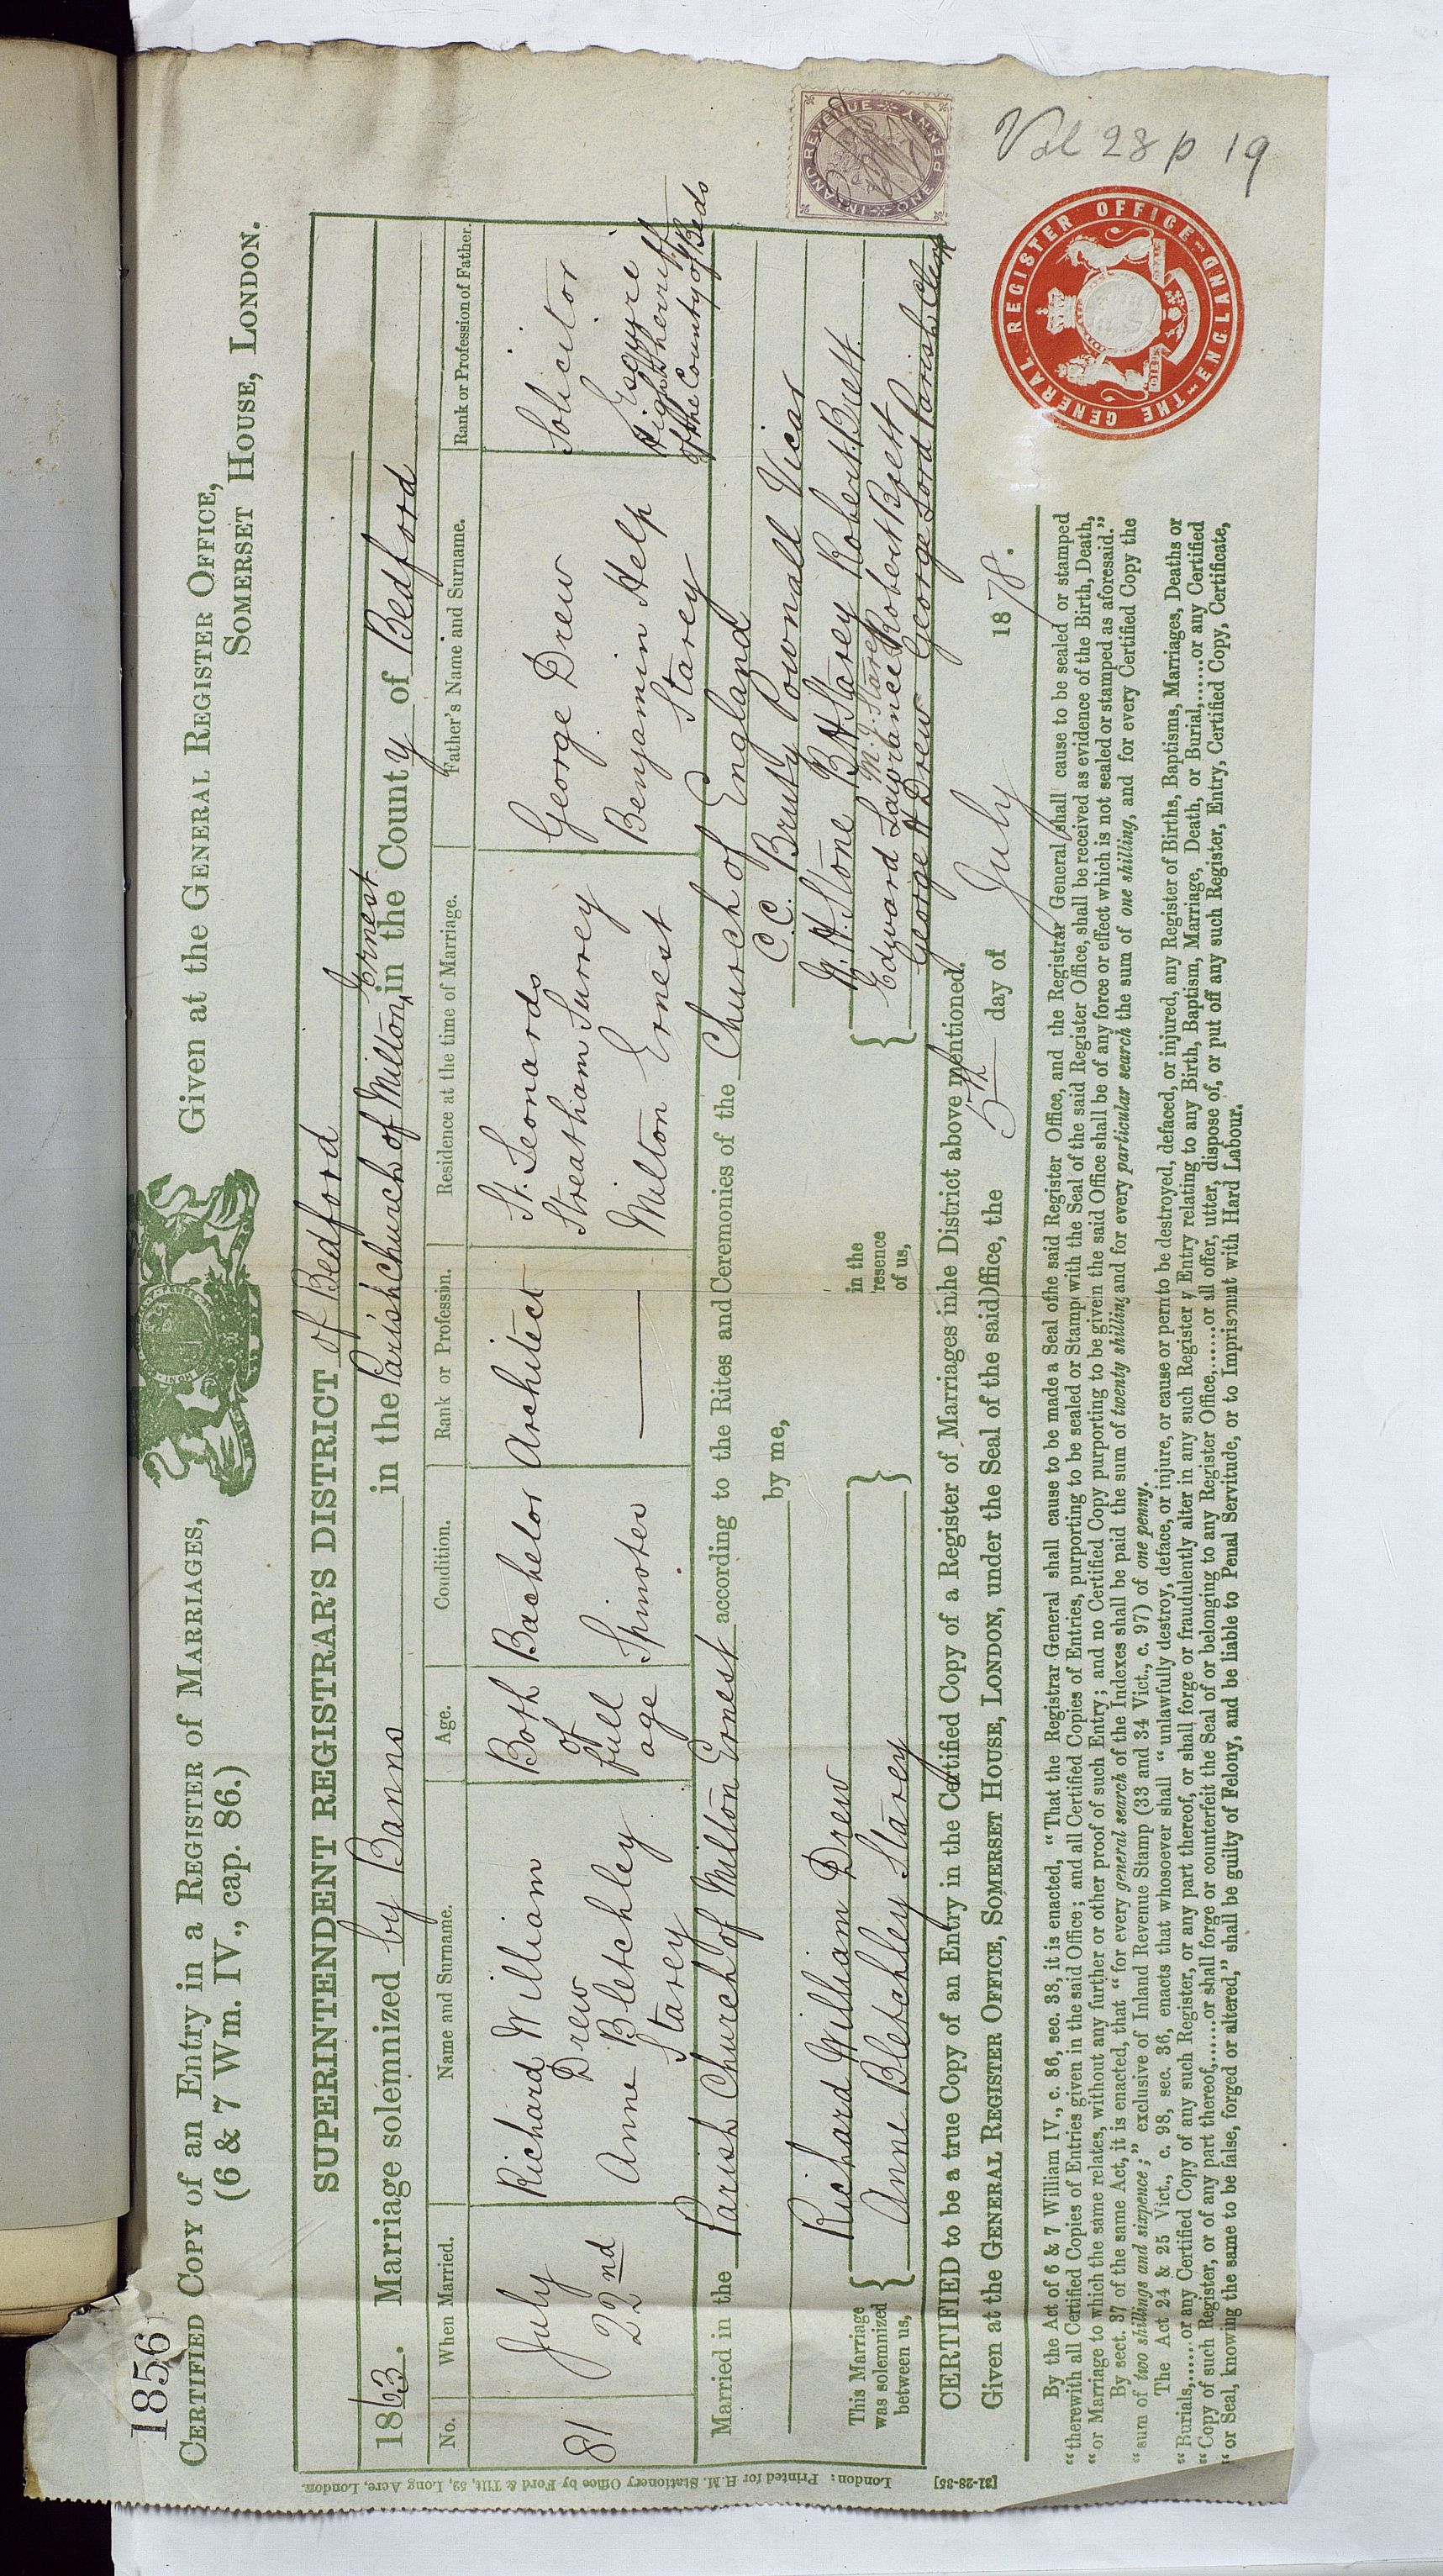 1856
CERTIFIED COPY of an Entry in a REGISTER of MARRIAGES,
(6 & 7 Wm. IV., cap. 86.)
Given at the GENERAL REGISTER OFFICE,
SOMERSET HOUSE, LONDON.
SUPERINTENDENT REGISTRAR'S DISTRICT of Bedford
1863. Marriage solemnized by Banns in the Parish Church of Milton Ernest in the County of Bedford
No. When Married. Name and Surname. Age. Condition. Rank or Profession. Residence at the time of Marriage. Father's Name and Surname. Rank or Profession of Father.
81 July 22nd Richard William Drew Both of full age Bachelor Architect St. Leonards Streatham Surrey George Drew Solicitor
Anne Bletchley Starey Spinster — Milton Ernest Benjamin Help Starey Esquire High Sherriff of the County of Beds
Married in the Parish Church of Milton Ernest according to the Rites and Ceremonies of the Church of England
by me, C. C. Bruty Pownall Vicar
This Marriage was solemnized between us, { Richard William Drew
Anne Bletchley Starey } in the resence of us, { H. Stone B H Starey Robert Brett
M. J. Starey
Edward Lawrance Robert Brett
George H Drew George Lord Parish Clerk
CERTIFIED to be a true Copy of an Entry in the Certified Copy of a Register of Marriages in he District above mentioned.
Given at the GENERAL REGISTER OFFICE, SOMERSET HOUSE, LONDON, under the Seal of the said Office, the 5th day of July 1878.
By the Act of 6 & 7 William IV., c. 86, sec. 38, it is enacted, "That the Registrar General shall cause to be made a Seal of the said Register Office, and the Registrar General shall cause to be sealed or stamped
"therewith all Certified Copies of Entries given in the said Office; and all Certified Copies of Entries, purporting to be sealed or Stamp with the Seal of the said Register Office, shall be received as evidence of the Birth, Death,
"or Marriage to which the same relates, without any further or other proof of such Entry; and no Certified Copy purporting to be given the said Office shall be of any force or effect which is not sealed or stamped as aforesaid."
By sect. 37 of the same Act, it is enacted, that "for every general search of the Indexes shall be paid the sum of twenty shilling and for every particular search the sum of one shilling, and for every Certified Copy the
"sum of two shillings and sixpence;" exclusive of Inland Revenue Stamp (33 and 34 Vict., c. 97) of one penny.
The Act 24 & 25 Vict., c. 98, sec. 36, enacts that whosoever shall "unlawfully destroy, deface, or injure, or cause or perm to be destroyed, defaced, or injured, any Register of Births, Baptisms, Marriages, Deaths or
"Burials,......or any Certified Copy of any such Register, or any part thereof, or shall forge or fraudulently alter in any such Register y Entry relating to any Birth, Baptism, Marriage, Death, or Burial,......or any Certified
"Copy of such Register, or of any part thereof,......or shall forge or counterfeit the Seal of or belonging to any Register Office,......or all offer, utter, dispose of, or put off any such Register, Entry, Certified Copy, Certificate,
"or Seal, knowing the same to be false, forged or altered," shall be guilty of Felony, and be liable to Penal Servitude, or to Imprisonment with Hard Labour.
London: Printed for H.M. Stationery Office by Ford & Tilt, 52, Long Acre, London.
[31-28-35]
INLAND REVENUE ONE PENNY
THE GENERAL REGISTER OFFICE ENGLAND
Vol 28 p 19